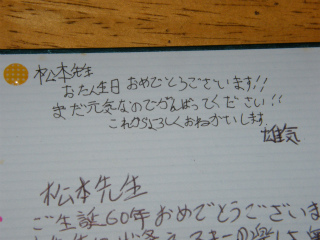 松本先生
おたん生日 おめでとうございます!!
まだ元気なのでがんばってください!!
これからもよろしくおねがいします
雄気
松本先生
ご生誕60年おめでとうございま